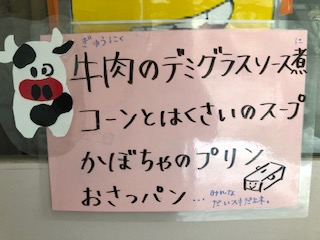 ぎゅうにく に
牛肉のデミグラスソース煮
コーンとはくさいのスープ
かぼちゃのプリン
おさつパン…
みんな
だいスキだよネ。